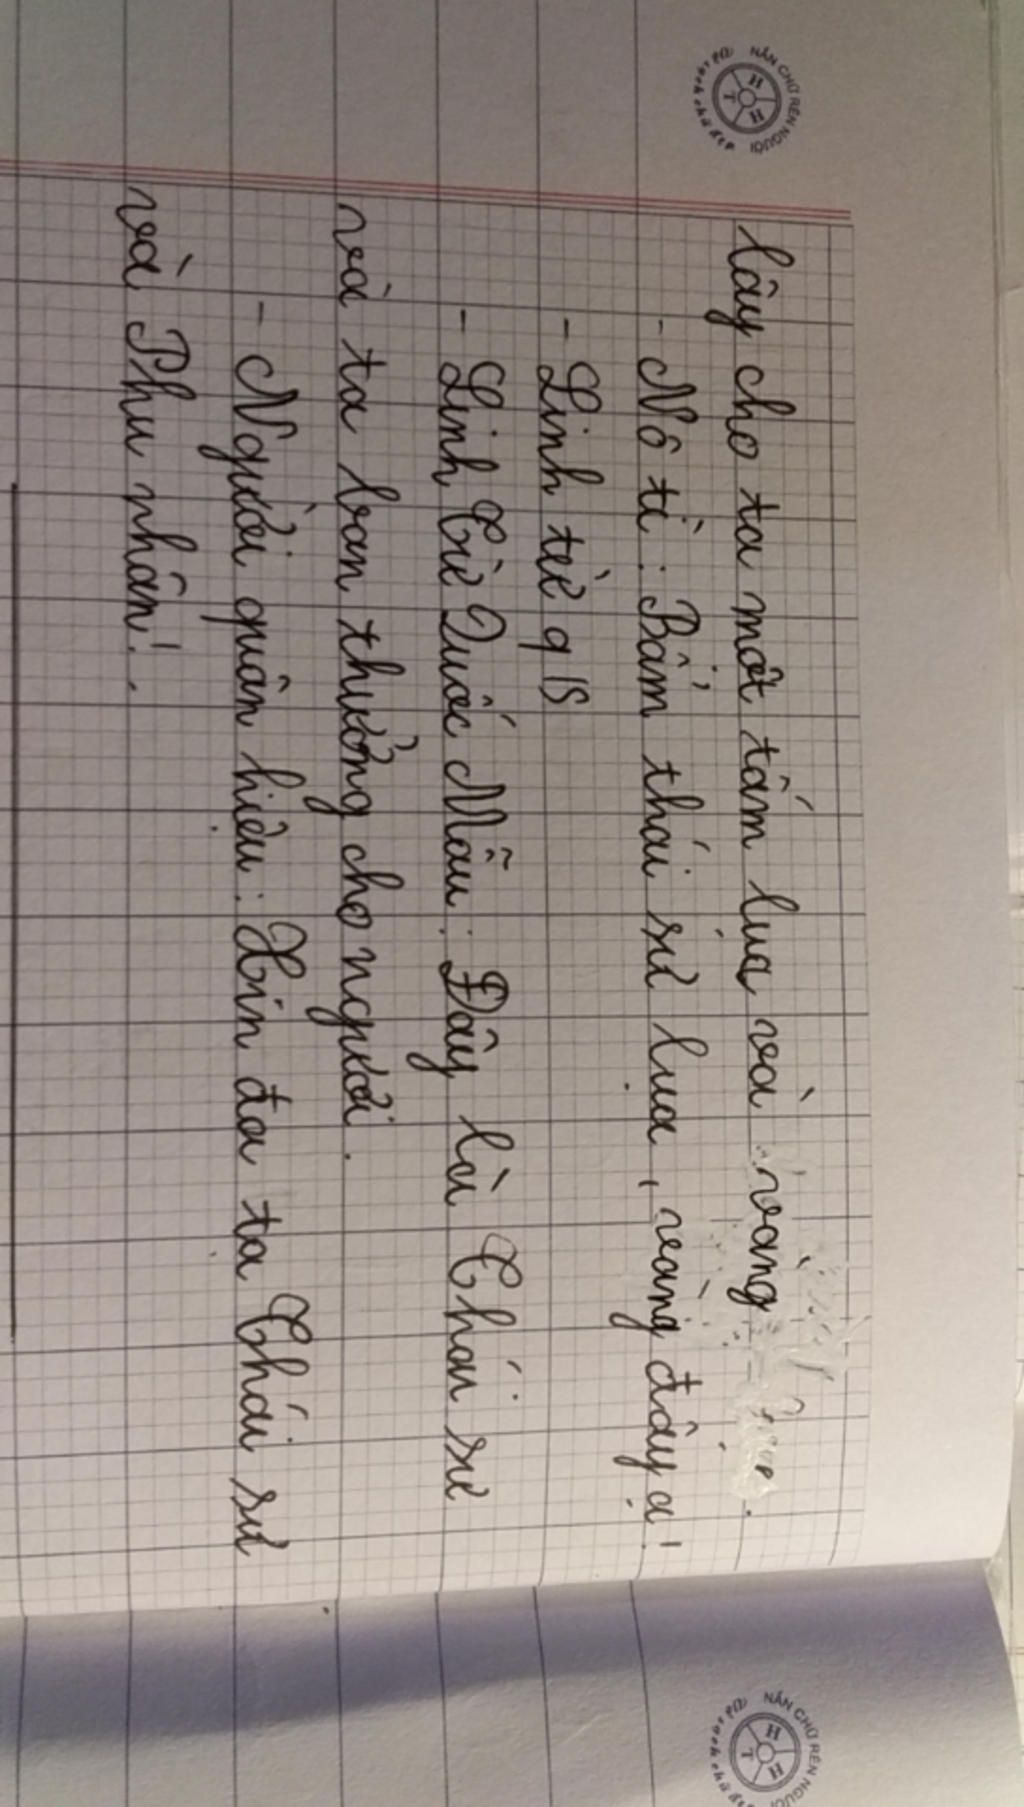 NẮN CHỮ RÈN NGƯỜI
H H T
lấy cho ta một tấm lụa và vàng
- Nô tì : Bẩm thái sư lụa, vàng đây ạ!
- Linh từ q
- Linh Từ Quốc Mẫu : Đây là Thái sư
và ta ban thưởng cho ngươi.
- Người quân hiệu : Xin đa tạ Thái sư
và Phu nhân!.
NẮN CHỮ RÈN NGƯỜI
H H T